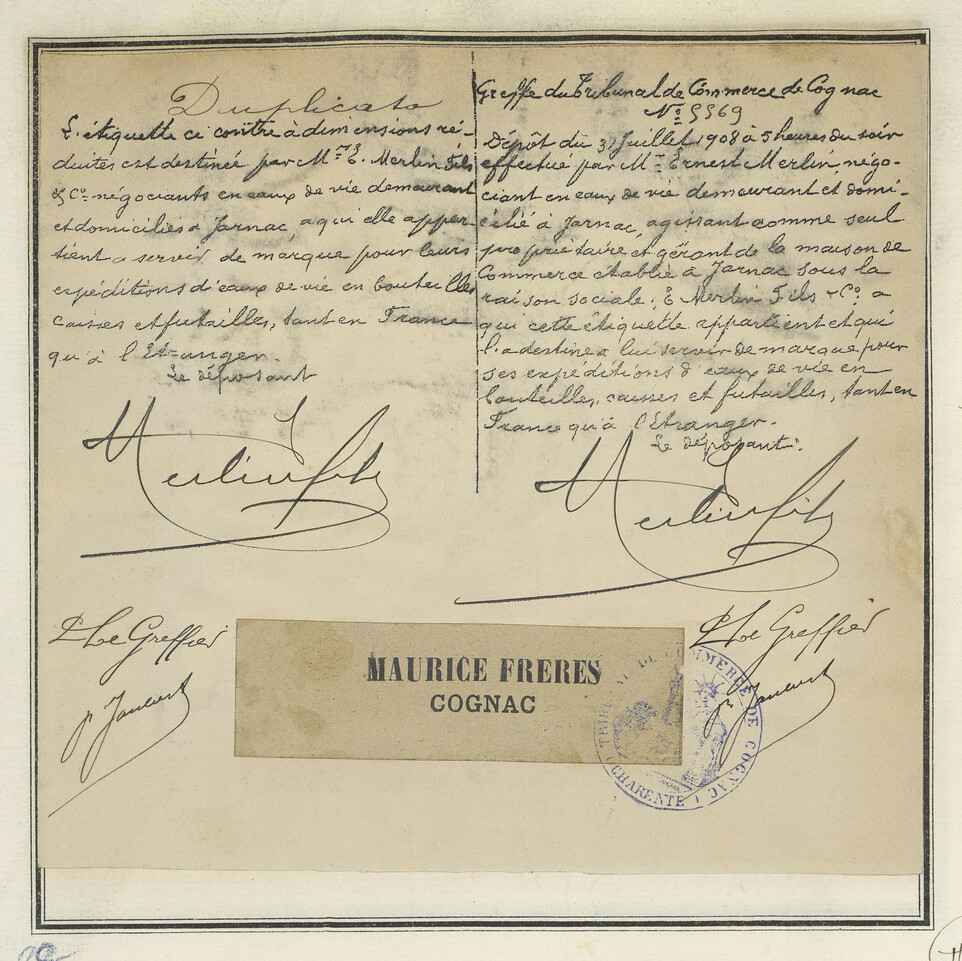 Duplicata
L'étiquette ci contre à dimensions ré-
duites est destinée par Mrs E. Merlin Fils
& Co. négociants en eaux de vie demeurant
et domiciliés à Jarnac, a qui elle appar-
tient a servir de marque pour leurs
expéditions d'eaux de vie en bouteilles
caisses et futailles, tant en France
qu'à l'Etranger.
Le déposant
Merlin fils
Greffe du Tribunal de Commerce de Cognac
No 5569
Dépôt du 31 Juillet 1908 à 5 heures du soir
effectué par Mr Ernest Merlin, négo-
ciant en eaux de vie demeurant et domi-
cilié à Jarnac, agissant comme seul
propriétaire et gérant de la maison de
Commerce établie à Jarnac sous la
raison sociale: E Merlin Fils & Co. a
qui cette étiquette appartient et qui
l'a destine a lui servir de marque pour
ses expéditions d'eaux de vie en
bouteilles, caisses et futailles, tant en
France qu'à l'Etranger.
Le déposant:
Merlin fils
Le Greffier
MAURICE FRERES
COGNAC
Le Greffier
TRIBUNAL DE COMMERCE DE COGNAC
CHARENTE